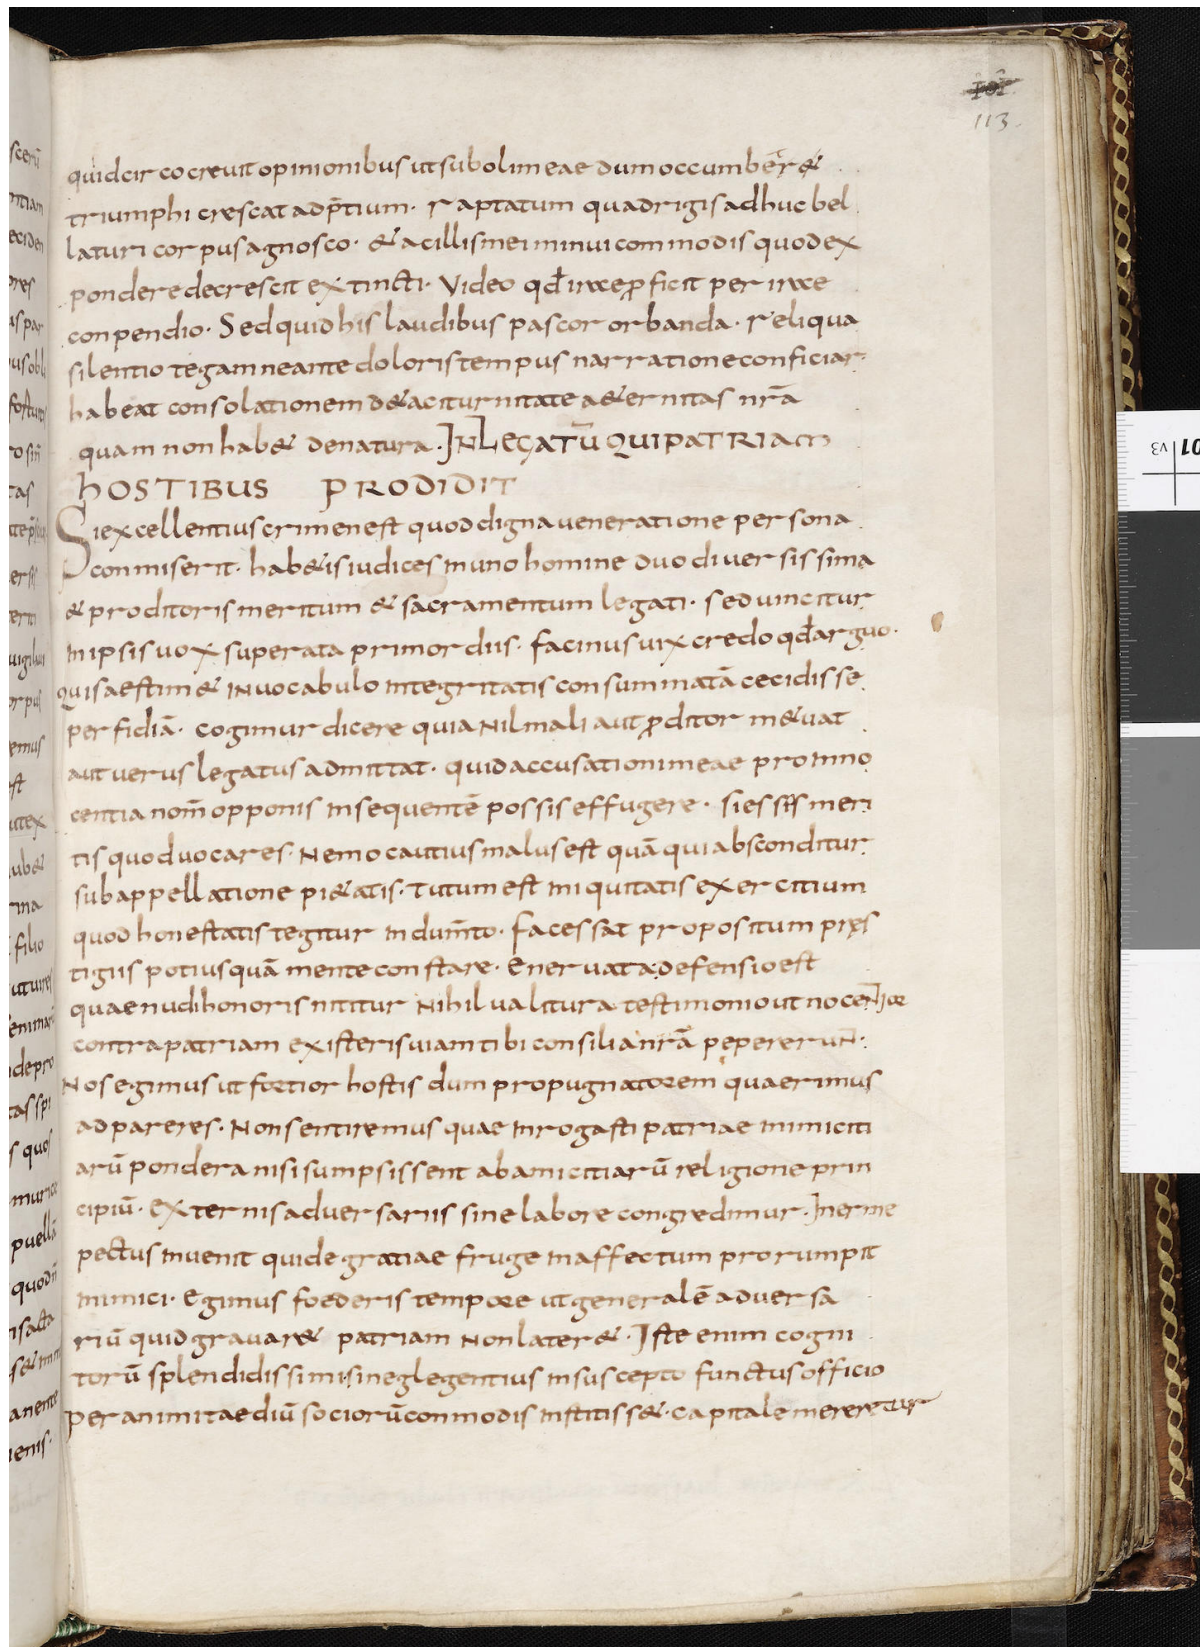 113.
quidcirco crevit opinionibus ut suboli meae dum occumber&
triumphi crescat adp̄tium. raptatum quadrigis adhuc bel
laturi corpus agnosco. & ac illis mei minui commodis quod ex
pondere decrescit extincti. Video qđ irae ꝓficit per irae
conpendio. Sed quid his laudibus pascor orbanda. reliqua
silentio tegam ne ante doloris tempus narratione conficiar.
habeat consolationem de taciturnitate a&ernitas nrā
quam non hab& de natura. IN LEGATŪ QUI PATRIAM
HOSTIBUS PRODIDIT
Si excellentius crimen est quod digna veneratione persona
conmiserit. hab&is iudices in uno homine duo diversissima
& proditoris meritum & sacramentum legati. sed vincitur
in ipsis vox superata primordiis. facinus vix credo qđ arguo.
quis aestim& in vocabulo integritatis consummatā cecidisse
perfidiā. cogimur dicere quia nil mali aut ꝓditor in&uat
aut verus legatus admittat. quid accusationi meae pro inno
centia nom̄ opponis insequentē possis effugere. si es
tis quod vocares. Nemo cautius malus est quā qui absconditur
sub appellatione pi&atis. Tutum est iniquitatis exercitium
quod honestatis tegitur indum̄to. facessat propositum
tigiis potius quā mente constare. Enervata defensio est
quae nudi honoris nititur Nihil valitura testimonio ut nocentior
contra patriam existeris viam tibi consilia nrā pepererunt.
Nos egimus ut fortior hostis dum propugnatorem quaerimus
adpareres. Non sentiremus quae inrogasti patriae inimiciti
arū pondera nisi sumpsissent ab amicitiarū religione prin
cipiū. Externis adversariis sine labore congredimur. Inerme
pectus invenit qui de gratiae fruge in affectum prorumpit
inimici. Egimus foederis tempore ut generalē adversa
riū quid gravar& patriam non later&. Iste enim cogni
torū splendidissimi si neglegentius in suscepto functus officio
per animi taediū sociorū conmodis institiss&. capitale mereretur